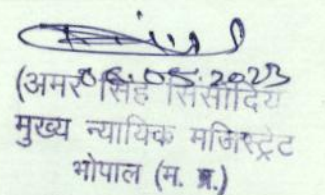 05.05.2023
(अमर सिंह सिसोदिय
मुख्य न्यायिक मजिस्ट्रेट
भोपाल (म. प्र.)